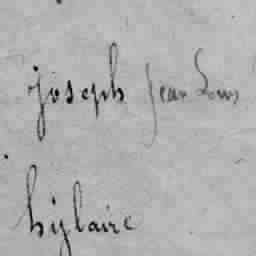 joseph jean Louis
hylaire